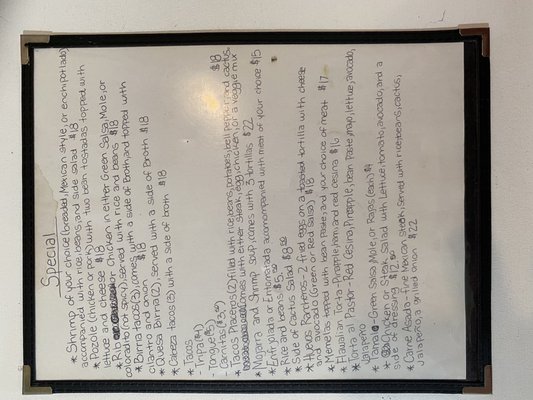 Special
* Shrimp of your choice (breaded, Mexican style, or enchipotlado)
acompanied with rice, beans, and side salad $18
* Pozole (chicken or pork) with two bean tostadas topped with
lettuce and cheese $18
* Rib or Chicken in either Green Salsa, Mole, or
(non spicy) served with rice and beans $18
* Birria tacos (3), comes with a side of broth, and topped with
cilantro and onion $18
* Quesa Birria (2), served with a side of broth $18
* Cabeza tacos (3) with a side of broth $18
* Tacos
- Tripa ($4)
- Lengua
- Carnitas
* Tacos Placeros (2) filled with rice, beans, potatoes, bell peppers, and cactus.
Comes with either steak, egg, chicken, or a veggie mix $18
* Mojarra and Shrimp soup, comes with 3 tortillas $22
* Enfrijolada or Entomatada accompanied with meat of your choice $15
* Rice and beans $5.00
* Side of Cactus Salad $8.00
* Huevos Rancheros - 2 fried eggs on a toasted tortilla with cheese
and avocado (Green or Red Salsa) $18
* Memelas topped with bean paste, and your choice of meat $17
* Hawaiian Torta - Pineapple, ham and red cesina $16
* Torta al Pastor - Red Cesina, Pineapple, bean paste, mayo, lettuce, avocado,
Jalapeño
* Tamal - Green Salsa, Mole, or Rajas (each) $4
* Chicken or Steak Salad with Lettuce, tomato, avocado, and a
side of dressing $12
* Carne Asada - fine Mexican Steak. Served with rice, beans, cactus,
jalapeños, a grilled onion $22